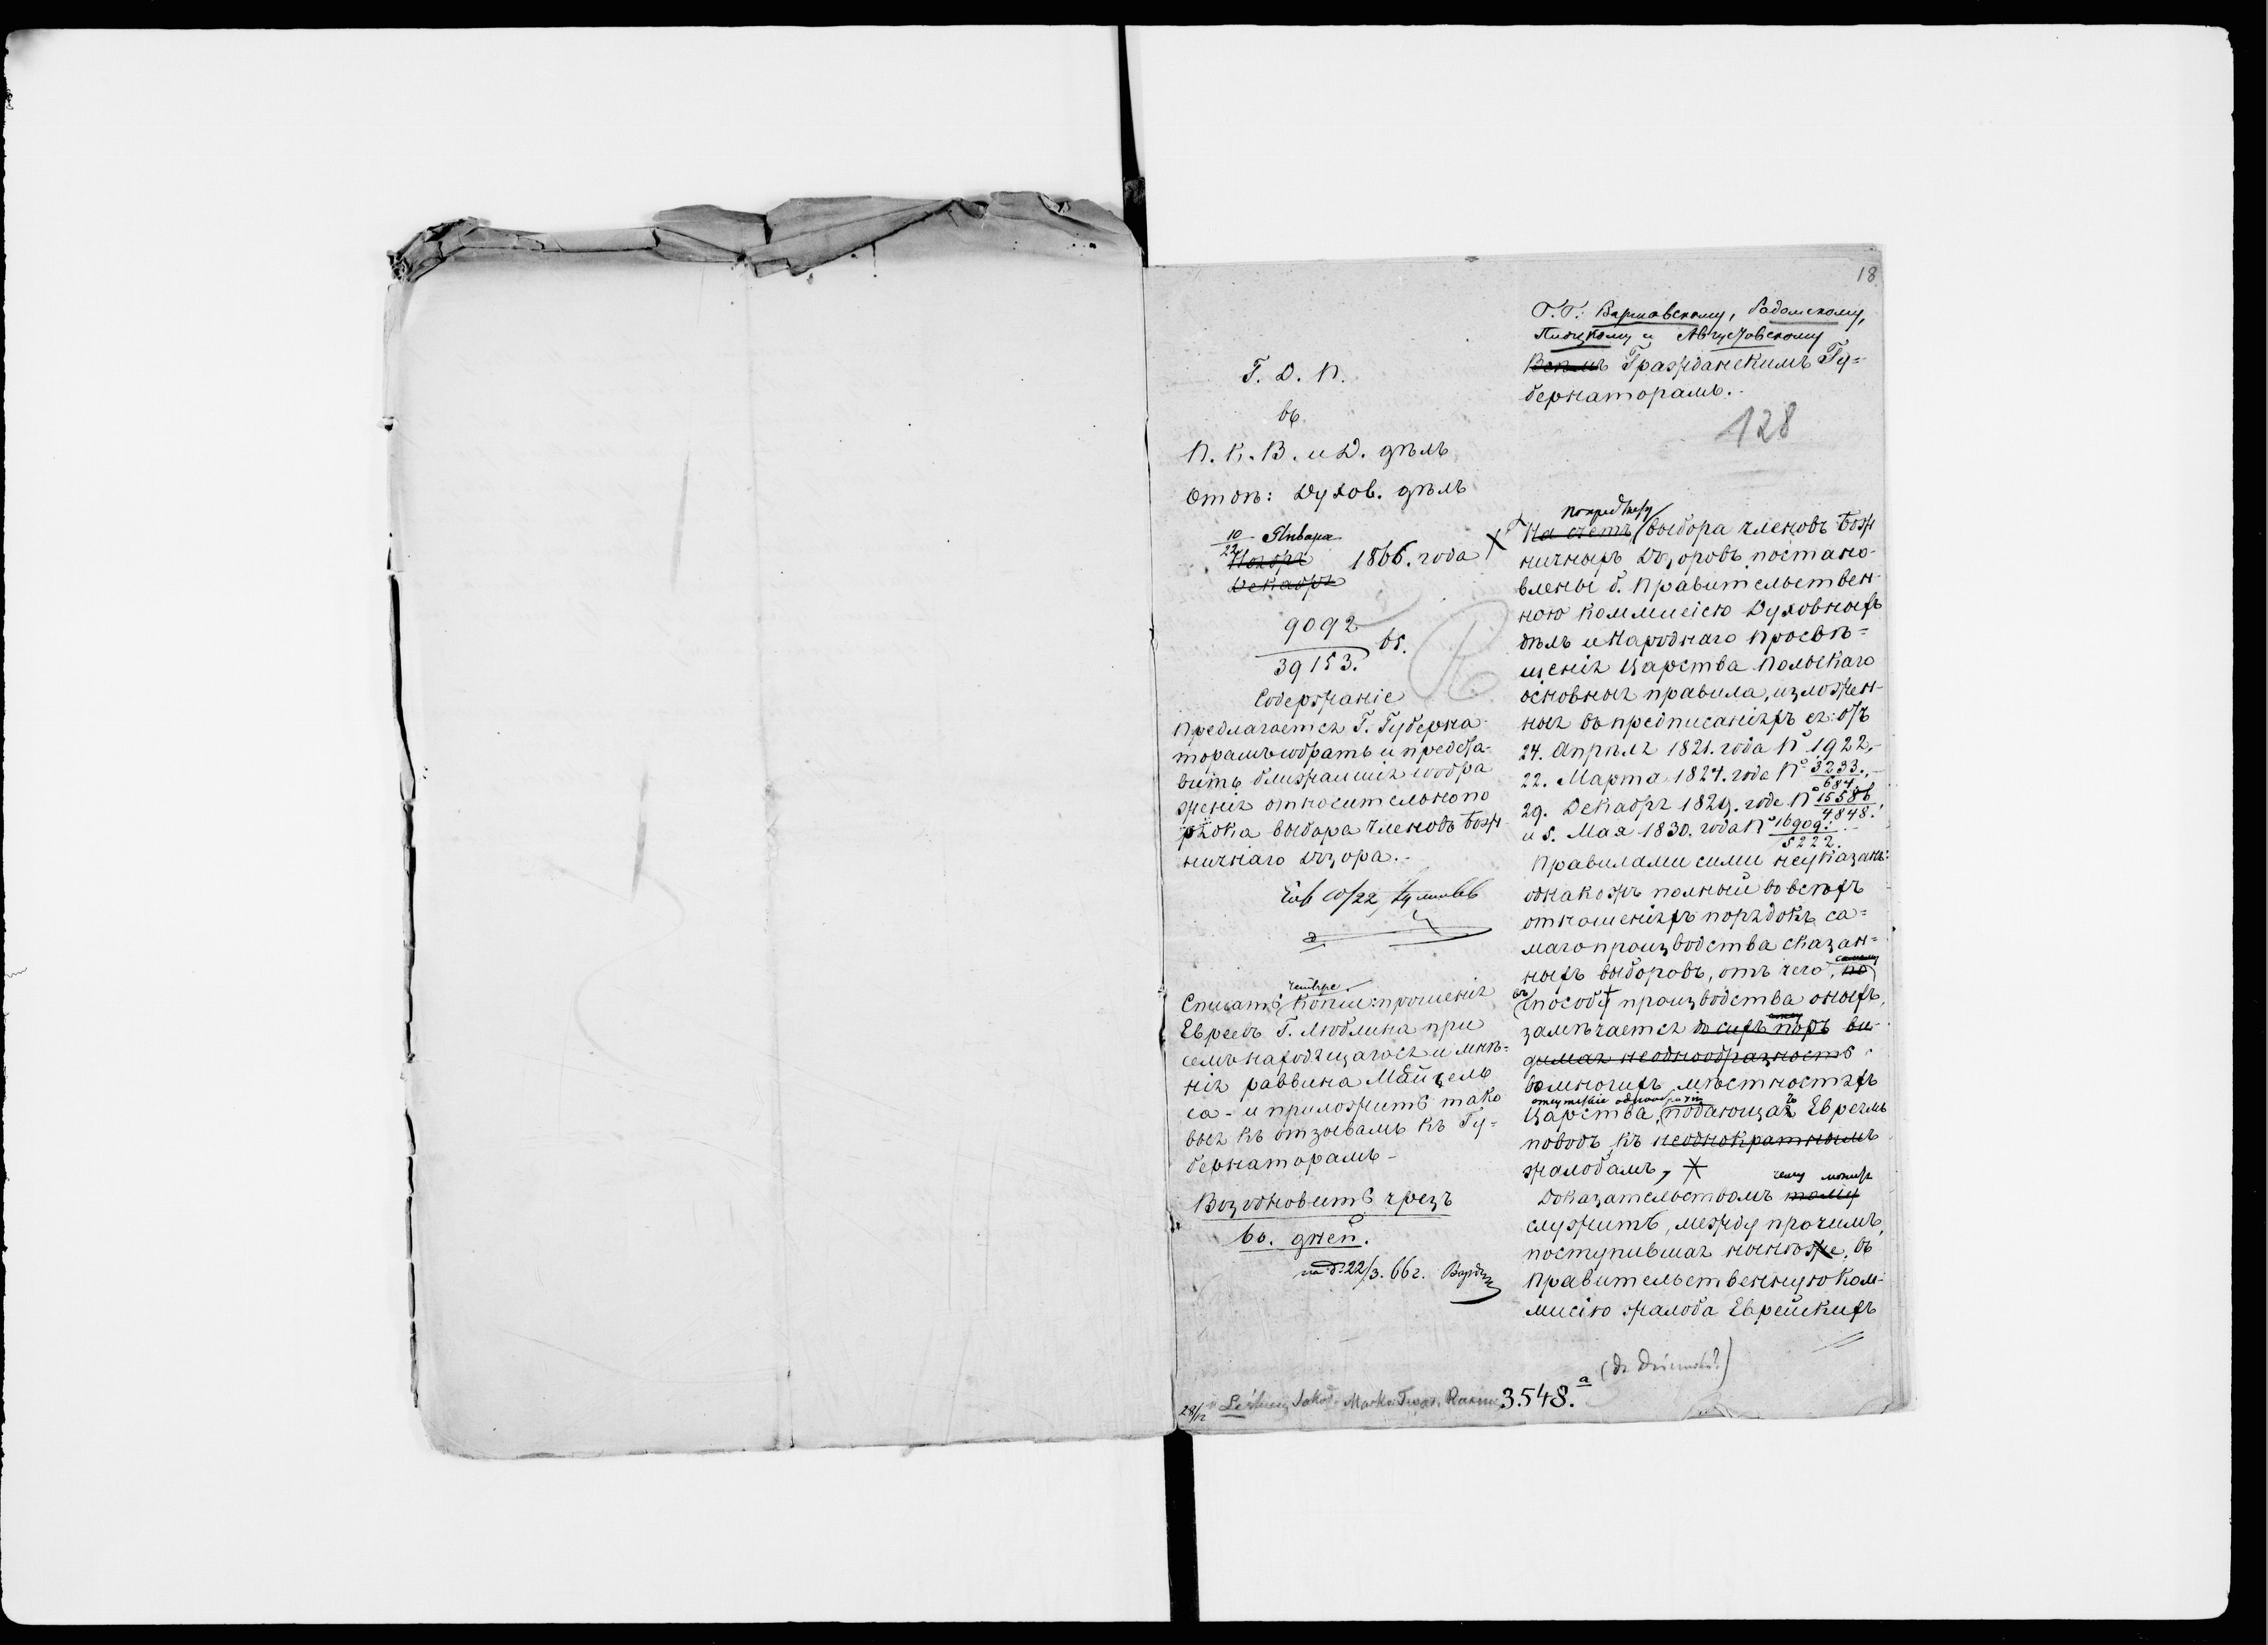 18
Г. Д. П.
въ
П. К. В. и Д. дѣлъ
Отдѣ: Духов. дѣлъ
10/22 Января
Ноября
Декабря
1866. года
9092
39153. bs.
Содержаніе
Предлагается Г. Губерна-
торамъ собрать и предста-
вить ближайшія сообра
женія относительно по
рядка выбора членовъ Бож-
ничнаго Дозора.-
Списать четыре копіи: прошенія
Евреевъ Г. Люблина при
семъ находящагося и мнѣ-
нія раввина Майзель
са - и приложить тако
выя къ отзывамъ къ Гу-
бернаторамъ -
Возобновить чрезъ
60. дней.
22/3. 66 г.
Г.Г. Варшавскому, Радомскому,
Плоцкому и Августовскому
Всѣмъ Гражданскимъ Гу=
бернаторамъ.-
128
На счетъ выбора членовъ Бож
ничныхъ Дозоровъ постано-
влены б. Правительствен-
ною Коммисіею Духовныхъ
дѣлъ и Народнаго Просвѣ=
щенія Царства Польскаго
основныя правила, изложен-
ныя въ предписаніяхъ ея: отъ
24. Апрѣля 1821. года № 1922,-
22. Марта 1824. года № 3233./684.,-
29. Декабря 1829. года № 15586/4848.,
и 5. Мая 1830. года № 16909./5222.-
Правилами сими не указанъ:
однакожъ полный во всѣхъ
отношеніяхъ порядокъ са=
маго производства сказан=
ныхъ выборовъ, отъ чего, по самому
способу производства оныхъ,
замѣчается до сихъ поръ ви-
димая неоднообразность
во многихъ мѣстностяхъ
отсутствіе однообразія
Царства, подающая Евреямъ
поводъ къ неоднократнымъ
жалобамъ,
Доказательствомъ тому чему можетъ
служить, между прочимъ,
поступившая нынѣ же въ
Правительственную Ком-
мисію жалоба Еврейскихъ
3.548.a
28/12